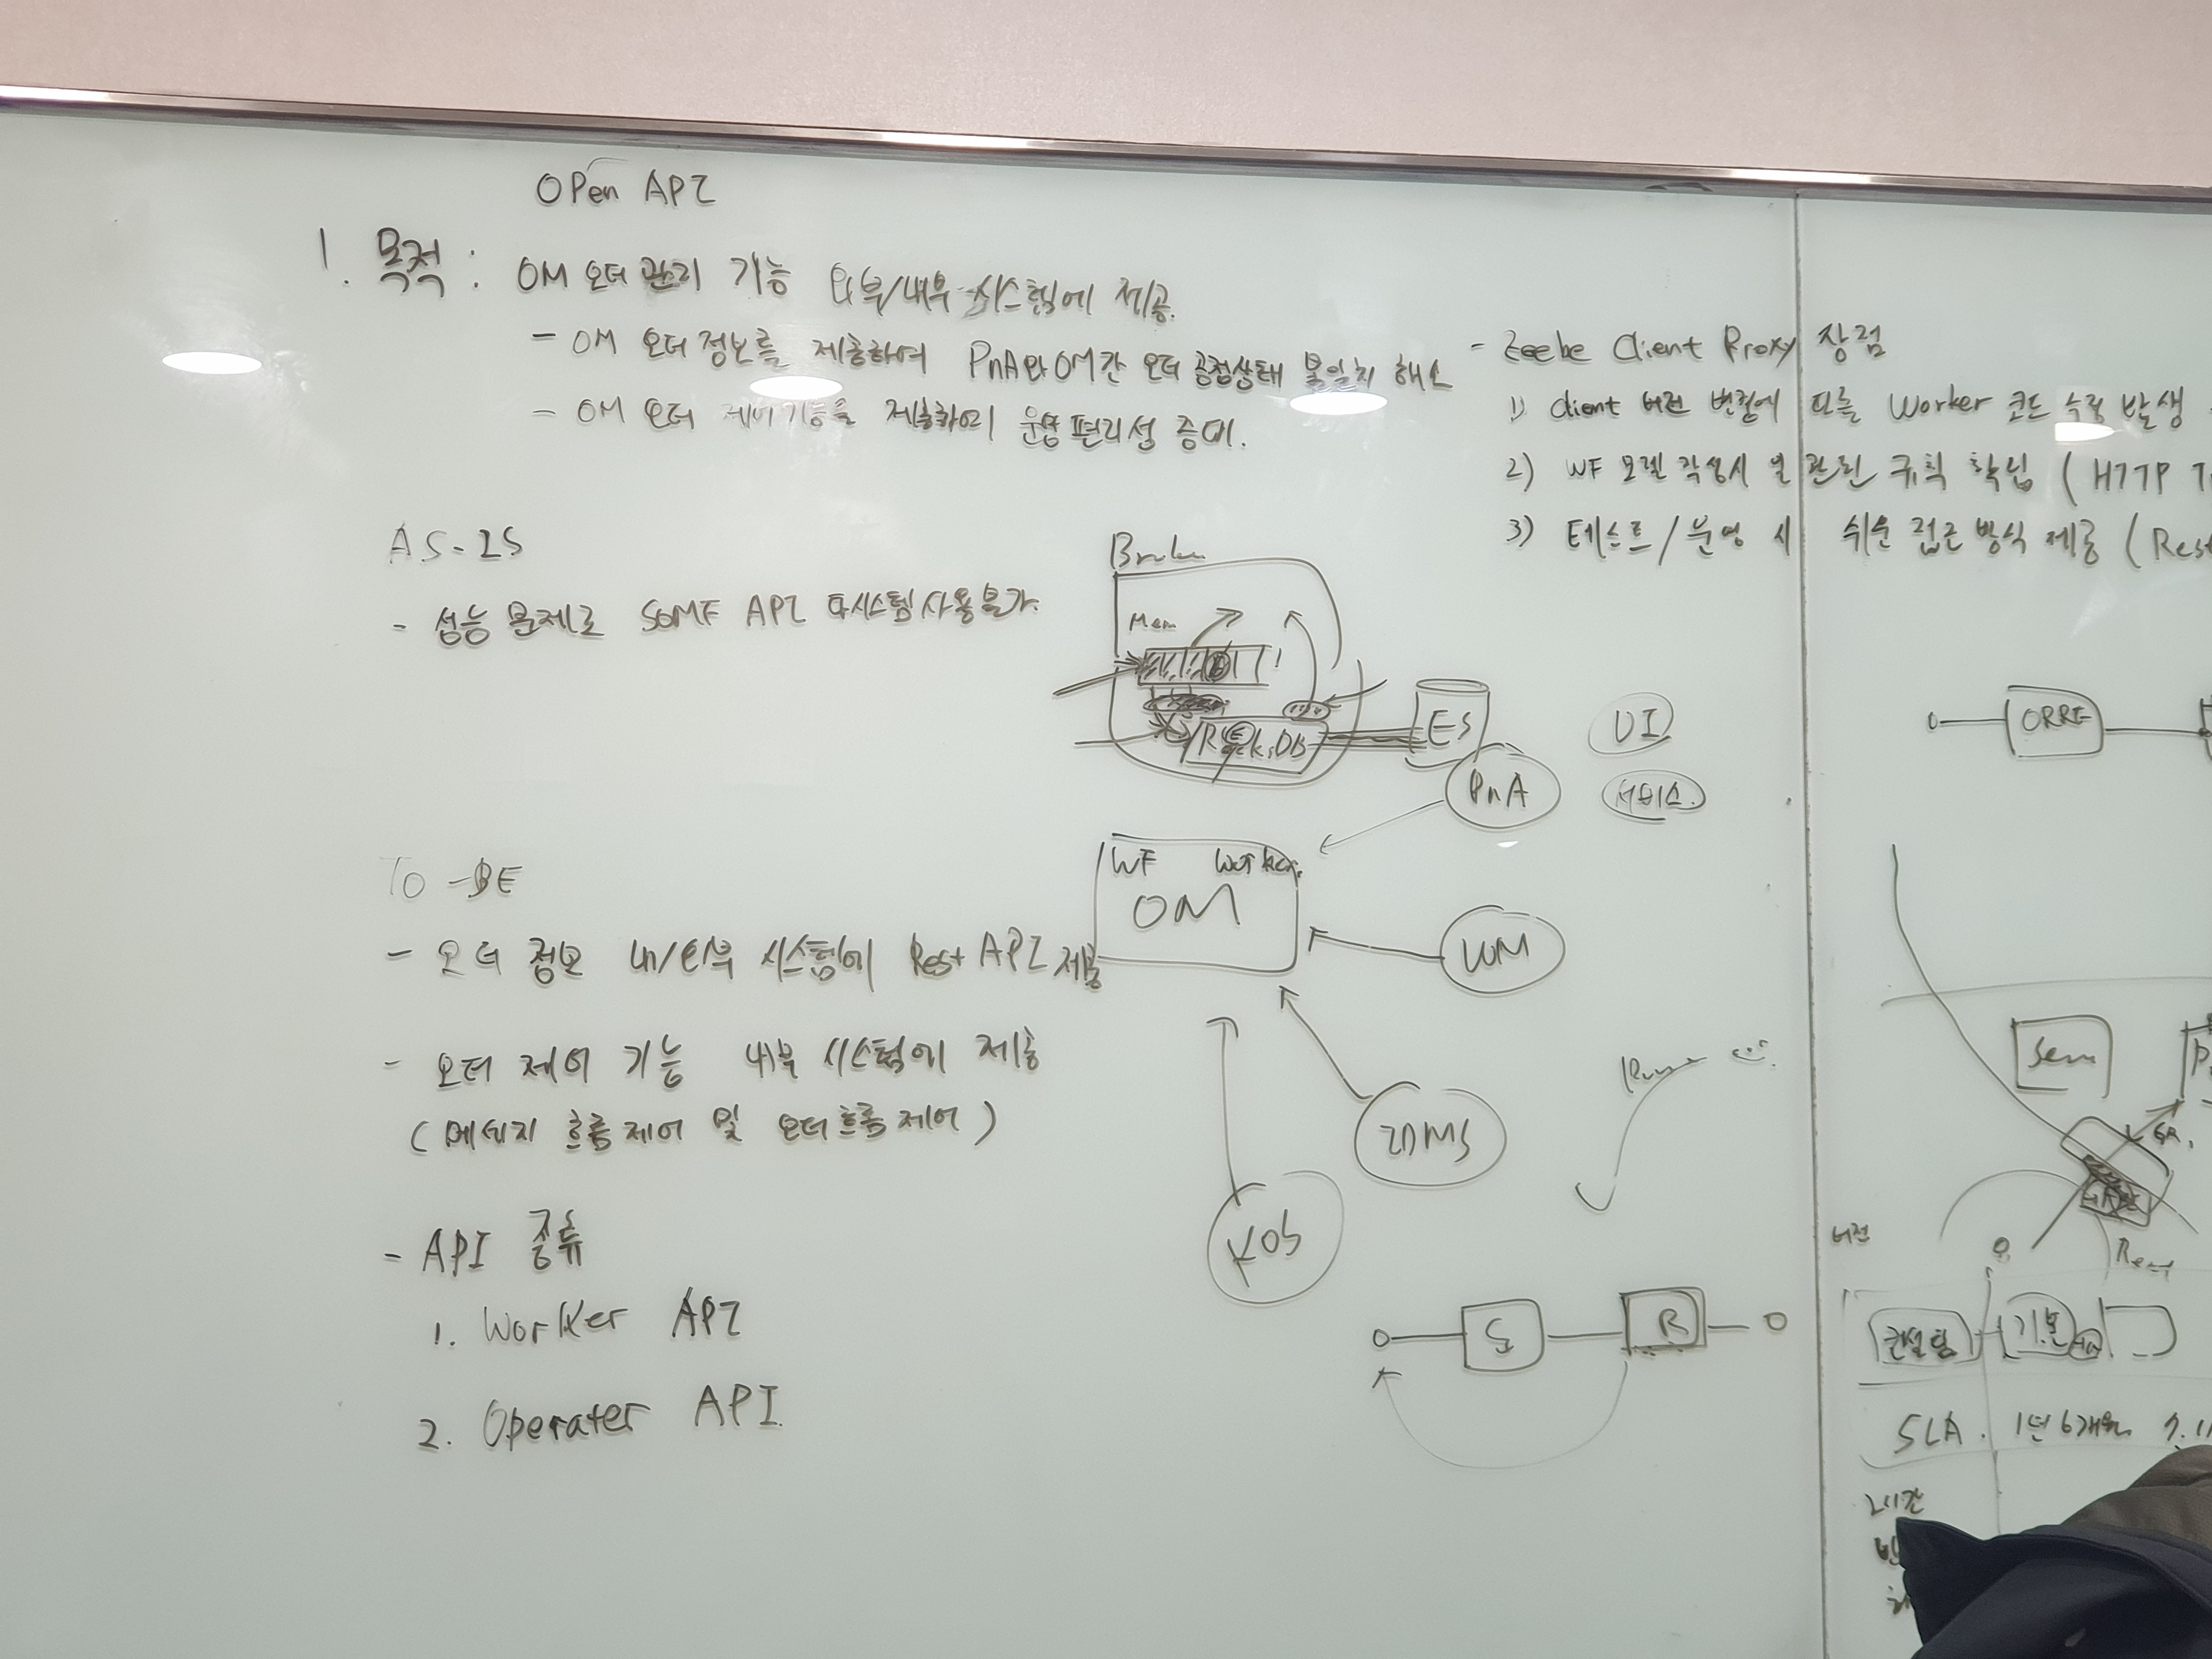 OPen API
1. 목적 : OM 오더 관리 기능 외부/내부 시스템에 제공.
- OM 오더 정보를 제공하여 PnA와 OM간 오더 공정상태 불일치 해소
- OM 오더 제어기능을 제공하여 운영 편리성 증대.
AS-IS
- 성능 문제로 SOMF API 타시스템 사용불가.
TO-BE
- 오더 정보 내/외부 시스템에 Rest API 제공
- 오더 제어 기능 내부 시스템에 제공
(메세지 흐름제어 및 오더흐름 제어)
- API 종류
1. Worker API
2. Operater API
Broker
Mem
RockDB
ES
UI
PnA
서비스
WF Worker
OM
WM
KOS
S
R
- Zeebe Client Proxy 장점
1) Client 버전 변경에 따른 Worker 코드 수정 발생
2) WF 모델 작성시 관련 규칙 학습 (HTTP
3) 테스트/운영 시 쉬운 접근 방식 제공 (Rest
버전
컨설팅
기본
SLA. 1년 6개월